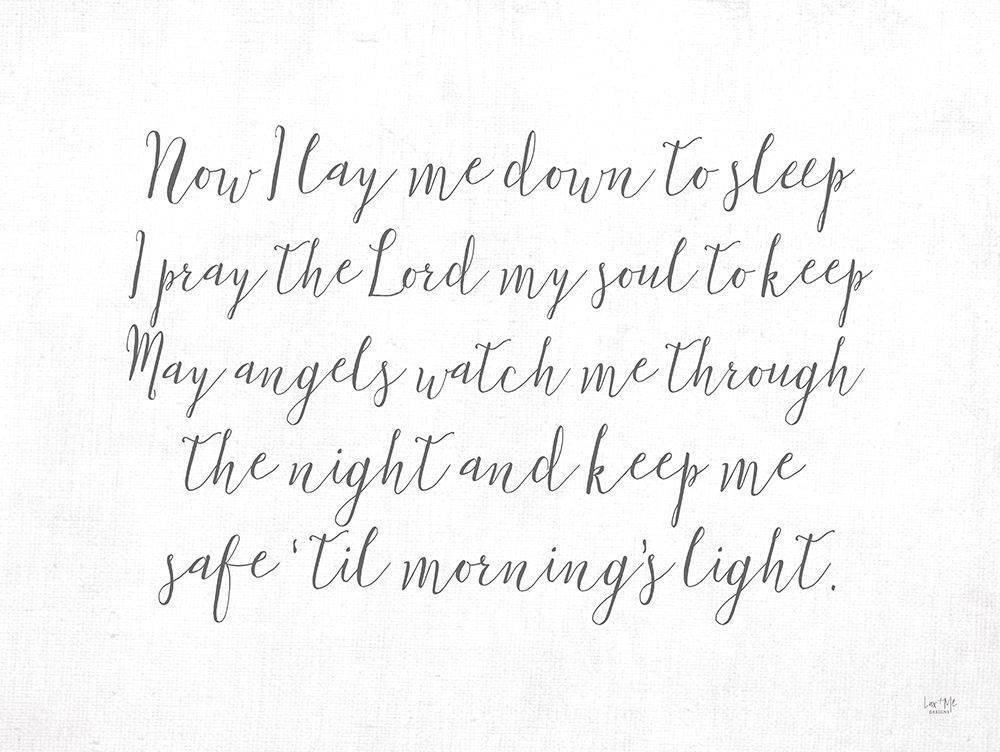 Now I lay me down to sleep
I pray the Lord my soul to keep
May angels watch me through
the night and keep me
safe 'til morning's light.
Lux + Me
DESIGNS